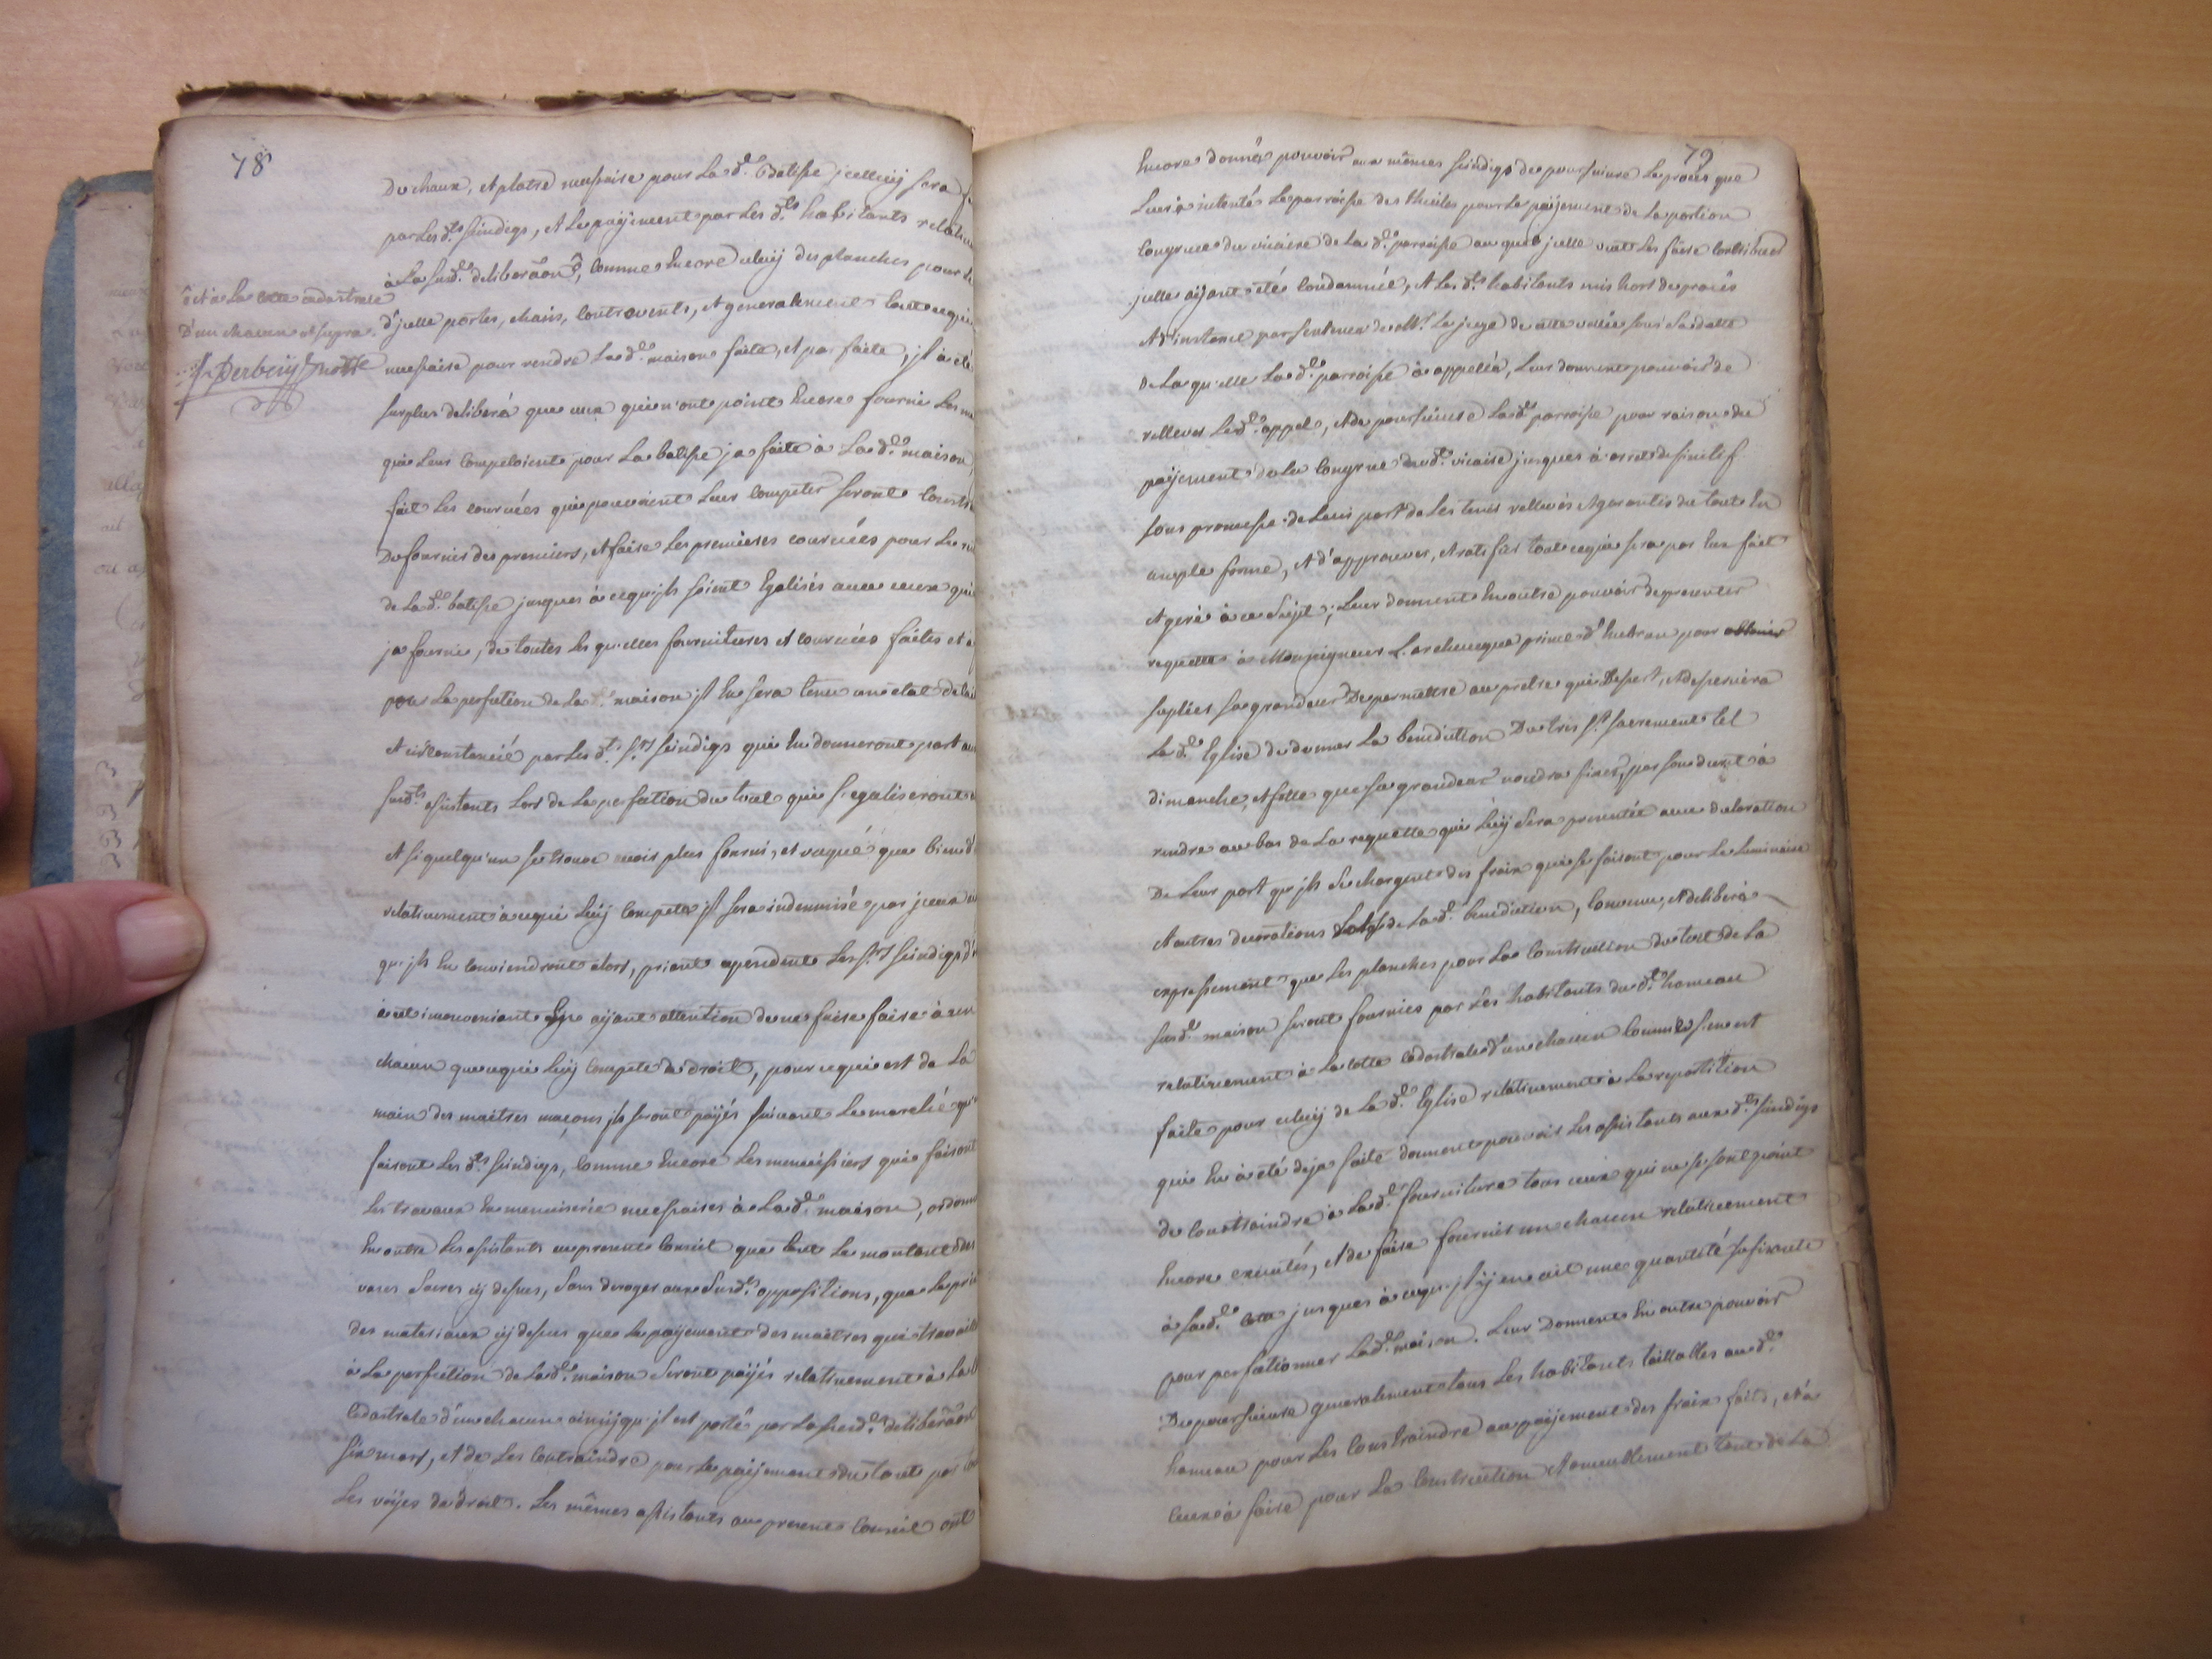 78
Du chaux, et platre necessaire pour La d.e Batisse jcelluij sera
par Les d.ts scindigs, et Le paÿement par Les d.ts habitants relative
à La sus d.e deliberaon, Comme Encore celuij des planches pour
d'jcelle portes, chasis, Contrevents, et generalement tout ce qui
necessaire pour rendre La d.e maison faite, et par faite, jl a eté
surplus deliberé que ceux qui n'ont point Encore fourni Les
qui Leur Competoient pour La batisse ja faite à La d.e maison
fait Les courvées qui pouvoient Leur Competer seront
De fournir des premiers, et faire Les premieres courvées pour
de La d.e batisse jusques à ce qu'jls soient Egalisés avec ceux qui
ja fourni, de toutes Les qu'elles fournitures et courvées faites et
pour La perfection de La d.e maison jl En sera tenu un état
et circonstancié par Les d.ts S.rs scindigs qui En donneront part
susd.ts assistants Lors de La perfection du tout qui s'egaliseront
et si quelqu'un se trouve avoir plus fourni, et vaqué que bien d'
relativement à ce qui Luij Compete jl sera indemnisé par jceux
qu'jls En Conviendront alors, priant cependent Les S.rs scindigs d'
à cet inconvenient En aÿant attention de ne faire faire à un
chacun que ce qui Luij Compete de droit, pour ce qui est de La
main des maitres maçons jls seront païés suivant Le marché qu'
fairont Les d.ts scindigs, Comme Encore Les menuisiers qui fairont
Les travaux En menuiserie necessaires à La d.e maison,
En outre Les assistants au present Conseil que tout Le montant des
vases Sacrés cij dessus, sans deroger aux susd.es oppositions, que Le prix
des materiaux cij dessus que Le paÿement des maitres qui
à La perfection de La d.e maison Seront païés relativement à La
Cadastrale d'un chacun ainsij qu'jl est porté par La susd.e deliberaon
six mars, et de Les Contraindre pour Le paÿement du tout par
Les voÿes de droit. Les mêmes assistants au present Conseil ont
et à La cotte cadastrale
D'un chacun ut supra.
Derbeÿ Notre
79
Encore donné pouvoir aux mêmes scindigs de poursuivre Le procés que
Leur à intenté La parroisse des Thuiles pour Le paÿement de La portion
Congrue du vicaire de La d.e parroisse au quel jcelle veut Les faire Contribuer
jcelle aÿant été Condamnée, et Les d.ts habitants mis hors de procés
et d'instance par sentence de Mr Le juge de cette vallée sous Sa datte
De La qu'elle La d.e parroisse à appellé, Leur donnent pouvoir de
relever Le d.t appel, et de poursuivre La d.e parroisse pour raison du
paÿement de La Congrue du d.t vicaire jusques à arret definitif
sous promesse de Leur part de Les tenir rellevés et garantis du tout En
ample forme, et d'approuver, et ratifier tout ce qui sera par Eux fait
et geré à ce sujet; Leur donnent En outre pouvoir de presenter
requette à Monseigneur L'archeveque prince d'Embrun pour obtenir
suplier sa grandeur De permettre au prêtre qui Desert, et desservira
La d.e Eglise de donner La benediction Du tres S.t sacrement tel
dimanche, et fette que sa grandeur voudra fixer, par son decret à
rendre au bas de La requette qui Luij sera presentée avec declaration
De Leur part qu'jls se chargent des fraix qui se fairont pour Le Luminaire
et autres decorations Lors de La d.e benediction, Convenu, et deliberé
expressement que Les planches pour La Construction du toit de La
susd.e maison seront fournies par Les habitants du d.t hameau
relativement à La Cotte Cadastrale d'un chacun
faite pour celuij de La d.e Eglise relativement à La repartition
qui En à été deja faite donnent pouvoir Les assistants aux d.ts scindigs
de Contraindre à La d.e fourniture tous ceux qui ne se sont point
Encore executés, et de faire fournir un chacun relativement
à Sa d.e Cotte jusques à ce qu'jl ÿ en ait une quantité suffisante
pour perfectionner La d.e maison. Leur Donnent En outre pouvoir
De poursuivre generalement tous Les habitants taillables au d.t
hameau pour Les Contraindre au paÿement des fraix faits, et à
ceux à faire pour La Construction et ameublement tant de La